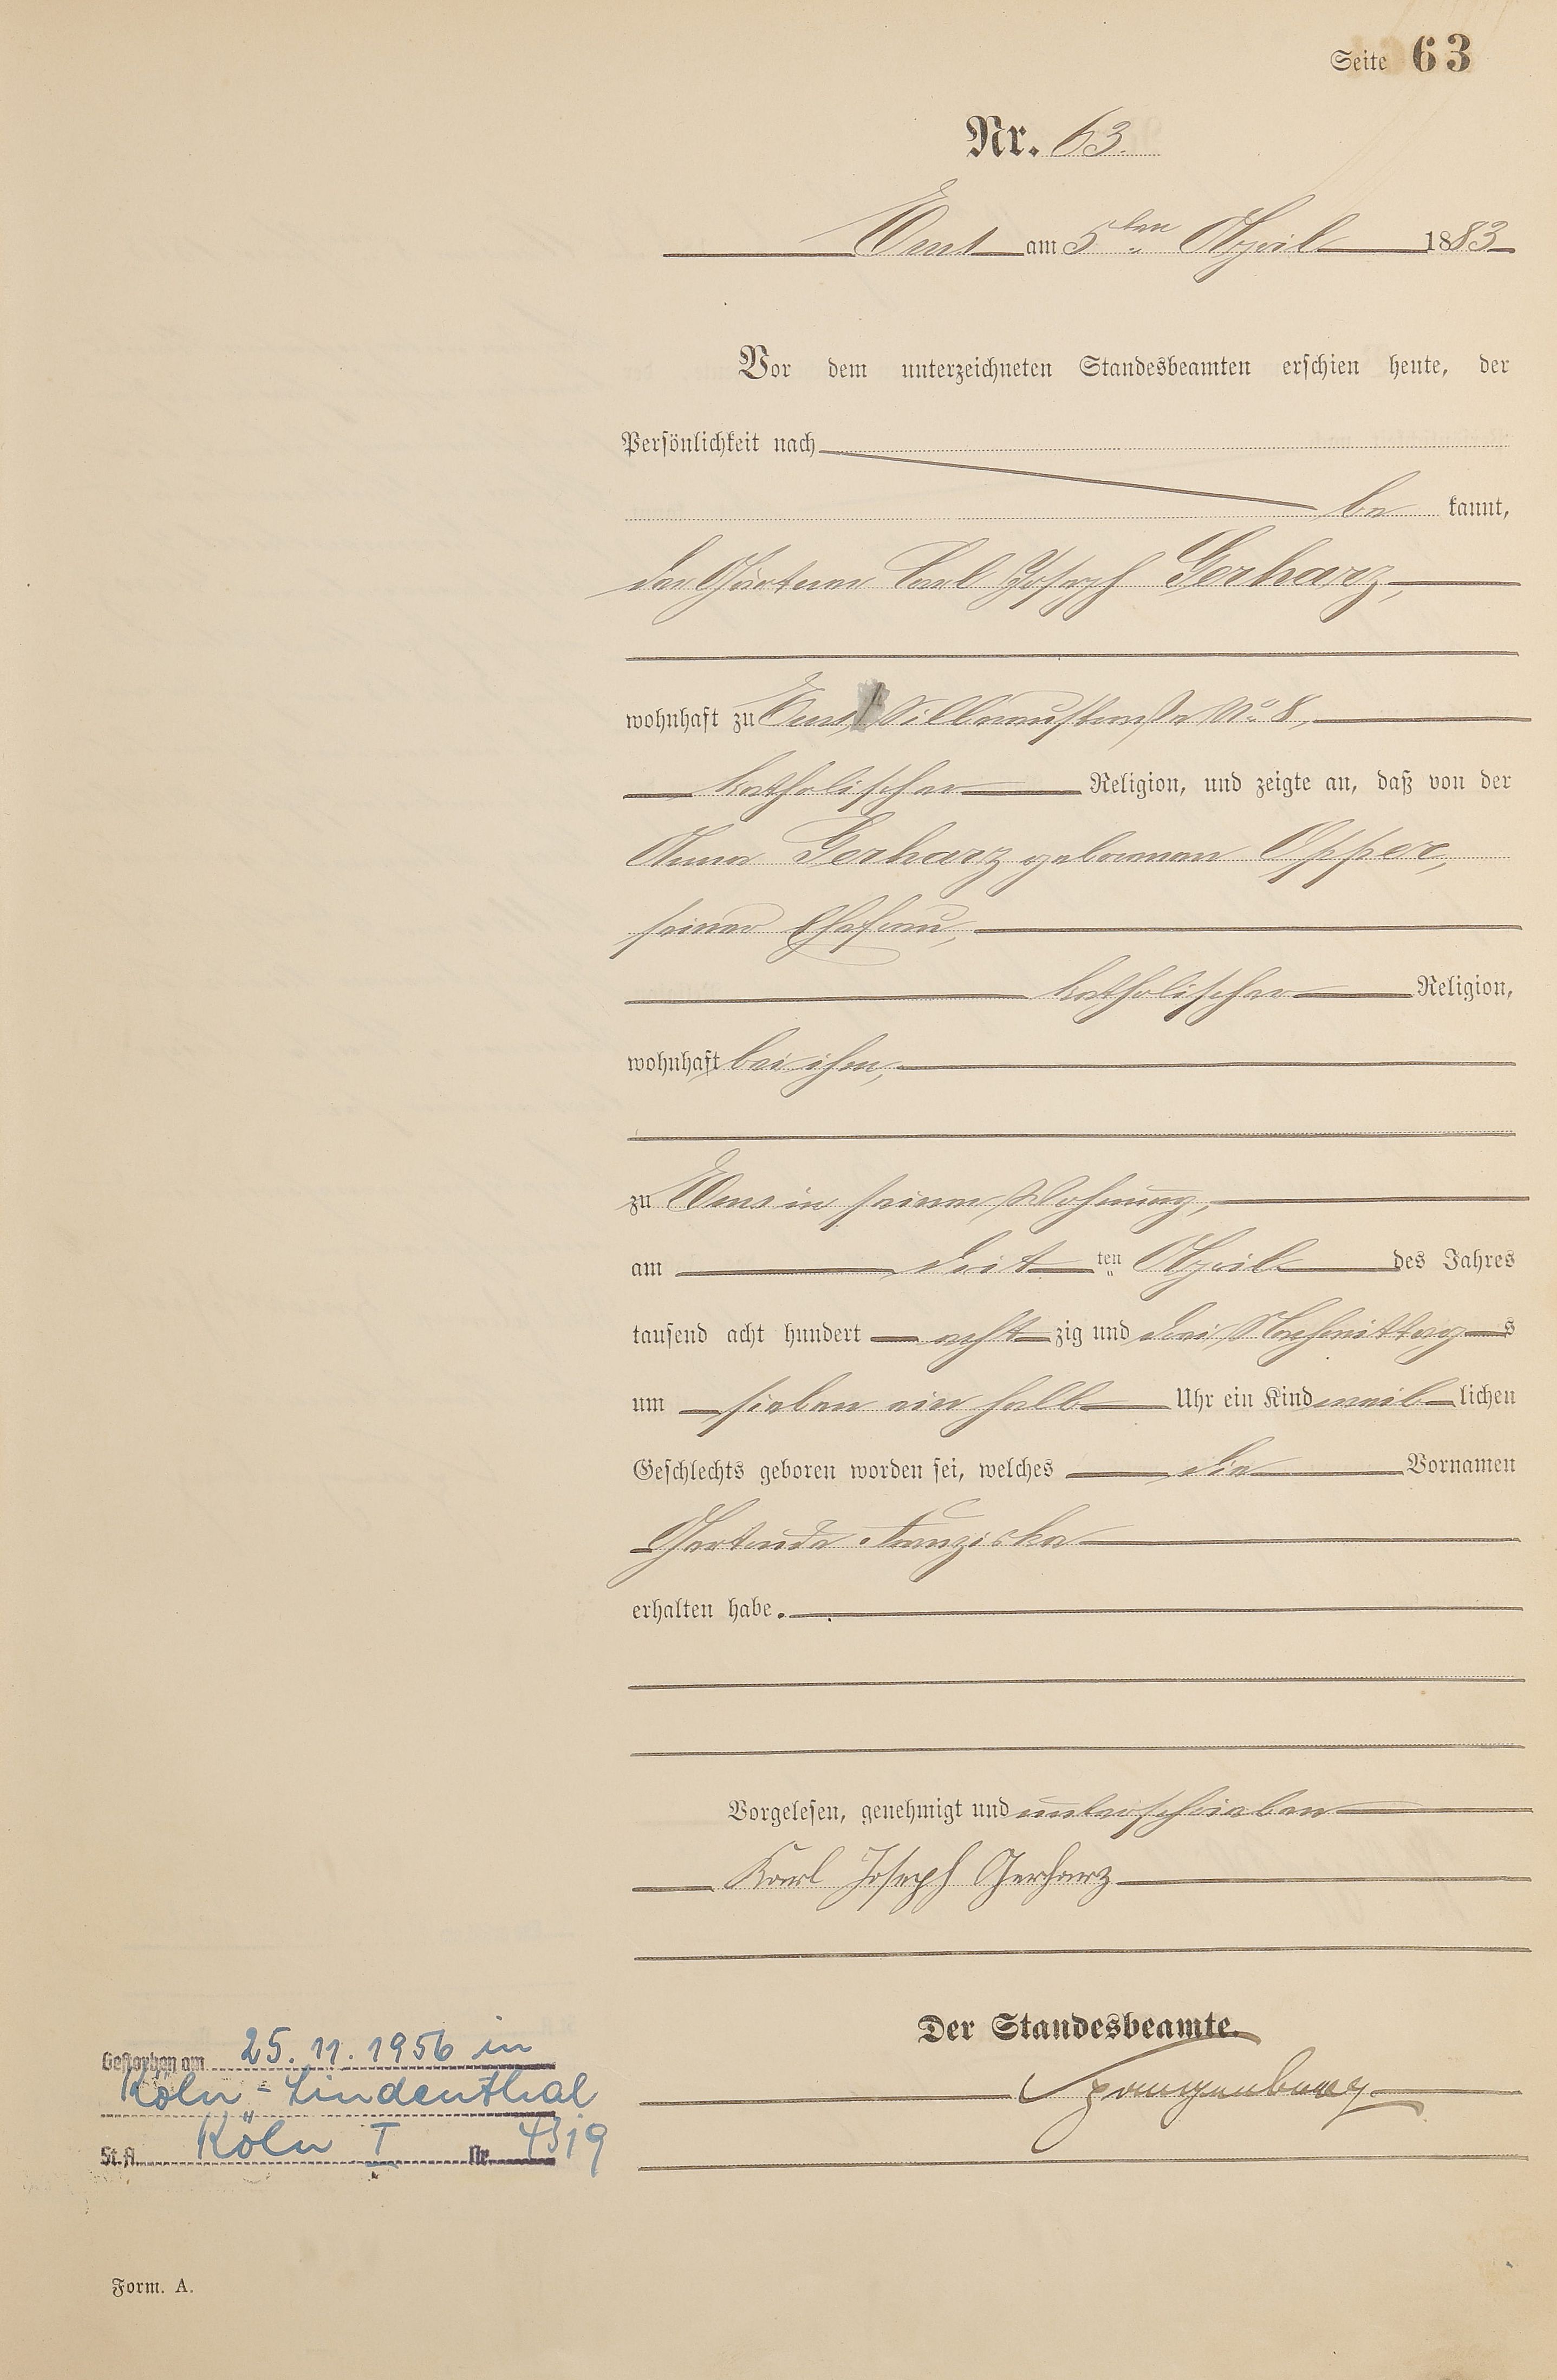 Seite 63
Nr. 63.
Ems am 5ten April 1883
Vor dem unterzeichneten Standesbeamten erschien heute, der
Persönlichkeit nach
be kannt,
der Gärtner Carl Joseph Gerharz,
wohnhaft zu Ems, No 8,
katholischer Religion, und zeigte an, daß von der
Anna Gerharz geborenen Opper,
seiner Ehefrau,
katholischer Religion,
wohnhaft bei ihm,
zu Ems in seiner Wohnung,
am drit ten April des Jahres
tausend acht hundert acht zig und drei Nachmittag s
um sieben ein halb Uhr ein Kind weib lichen
Geschlechts geboren worden sei, welches die Vornamen
Gertrude Franziska
erhalten habe.
Vorgelesen, genehmigt und unterschrieben
Karl Joseph Gerharz
Der Standesbeamte.
Spangenberg
Gestorben am 25.11.1956 in
Köln-Lindenthal
St.A. Köln I Nr. 4319
Form. A.